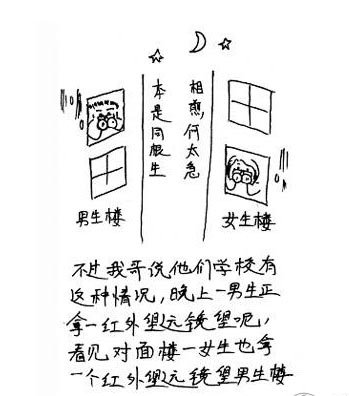 本是同根生
相煎何太急
男生楼
女生楼
不过我哥说他们学校有
这种情况，晚上一男生正
拿一红外望远镜望呢，
看见对面楼一女生也拿
一个红外望远镜望男生楼